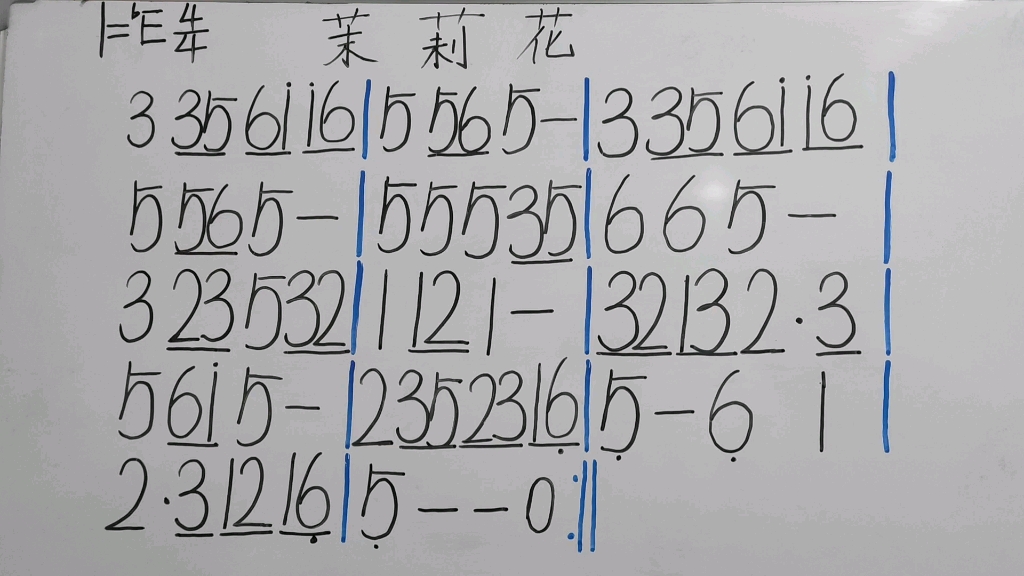 1=♭E 4/4 茉 莉 花
3 35 61̇ 1̇6 | 5 56 5 — | 3 35 61̇ 1̇6 |
5 56 5 — | 5 5 5 35 | 6 6 5 — |
3 23 5 32 | 1 12 1 — | 32 13 2·3 |
5 61̇ 5 — | 2 35 23 16̣ | 5̣ — 6̣ 1 |
2·3 12 16̣ | 5̣ — — 0 :‖